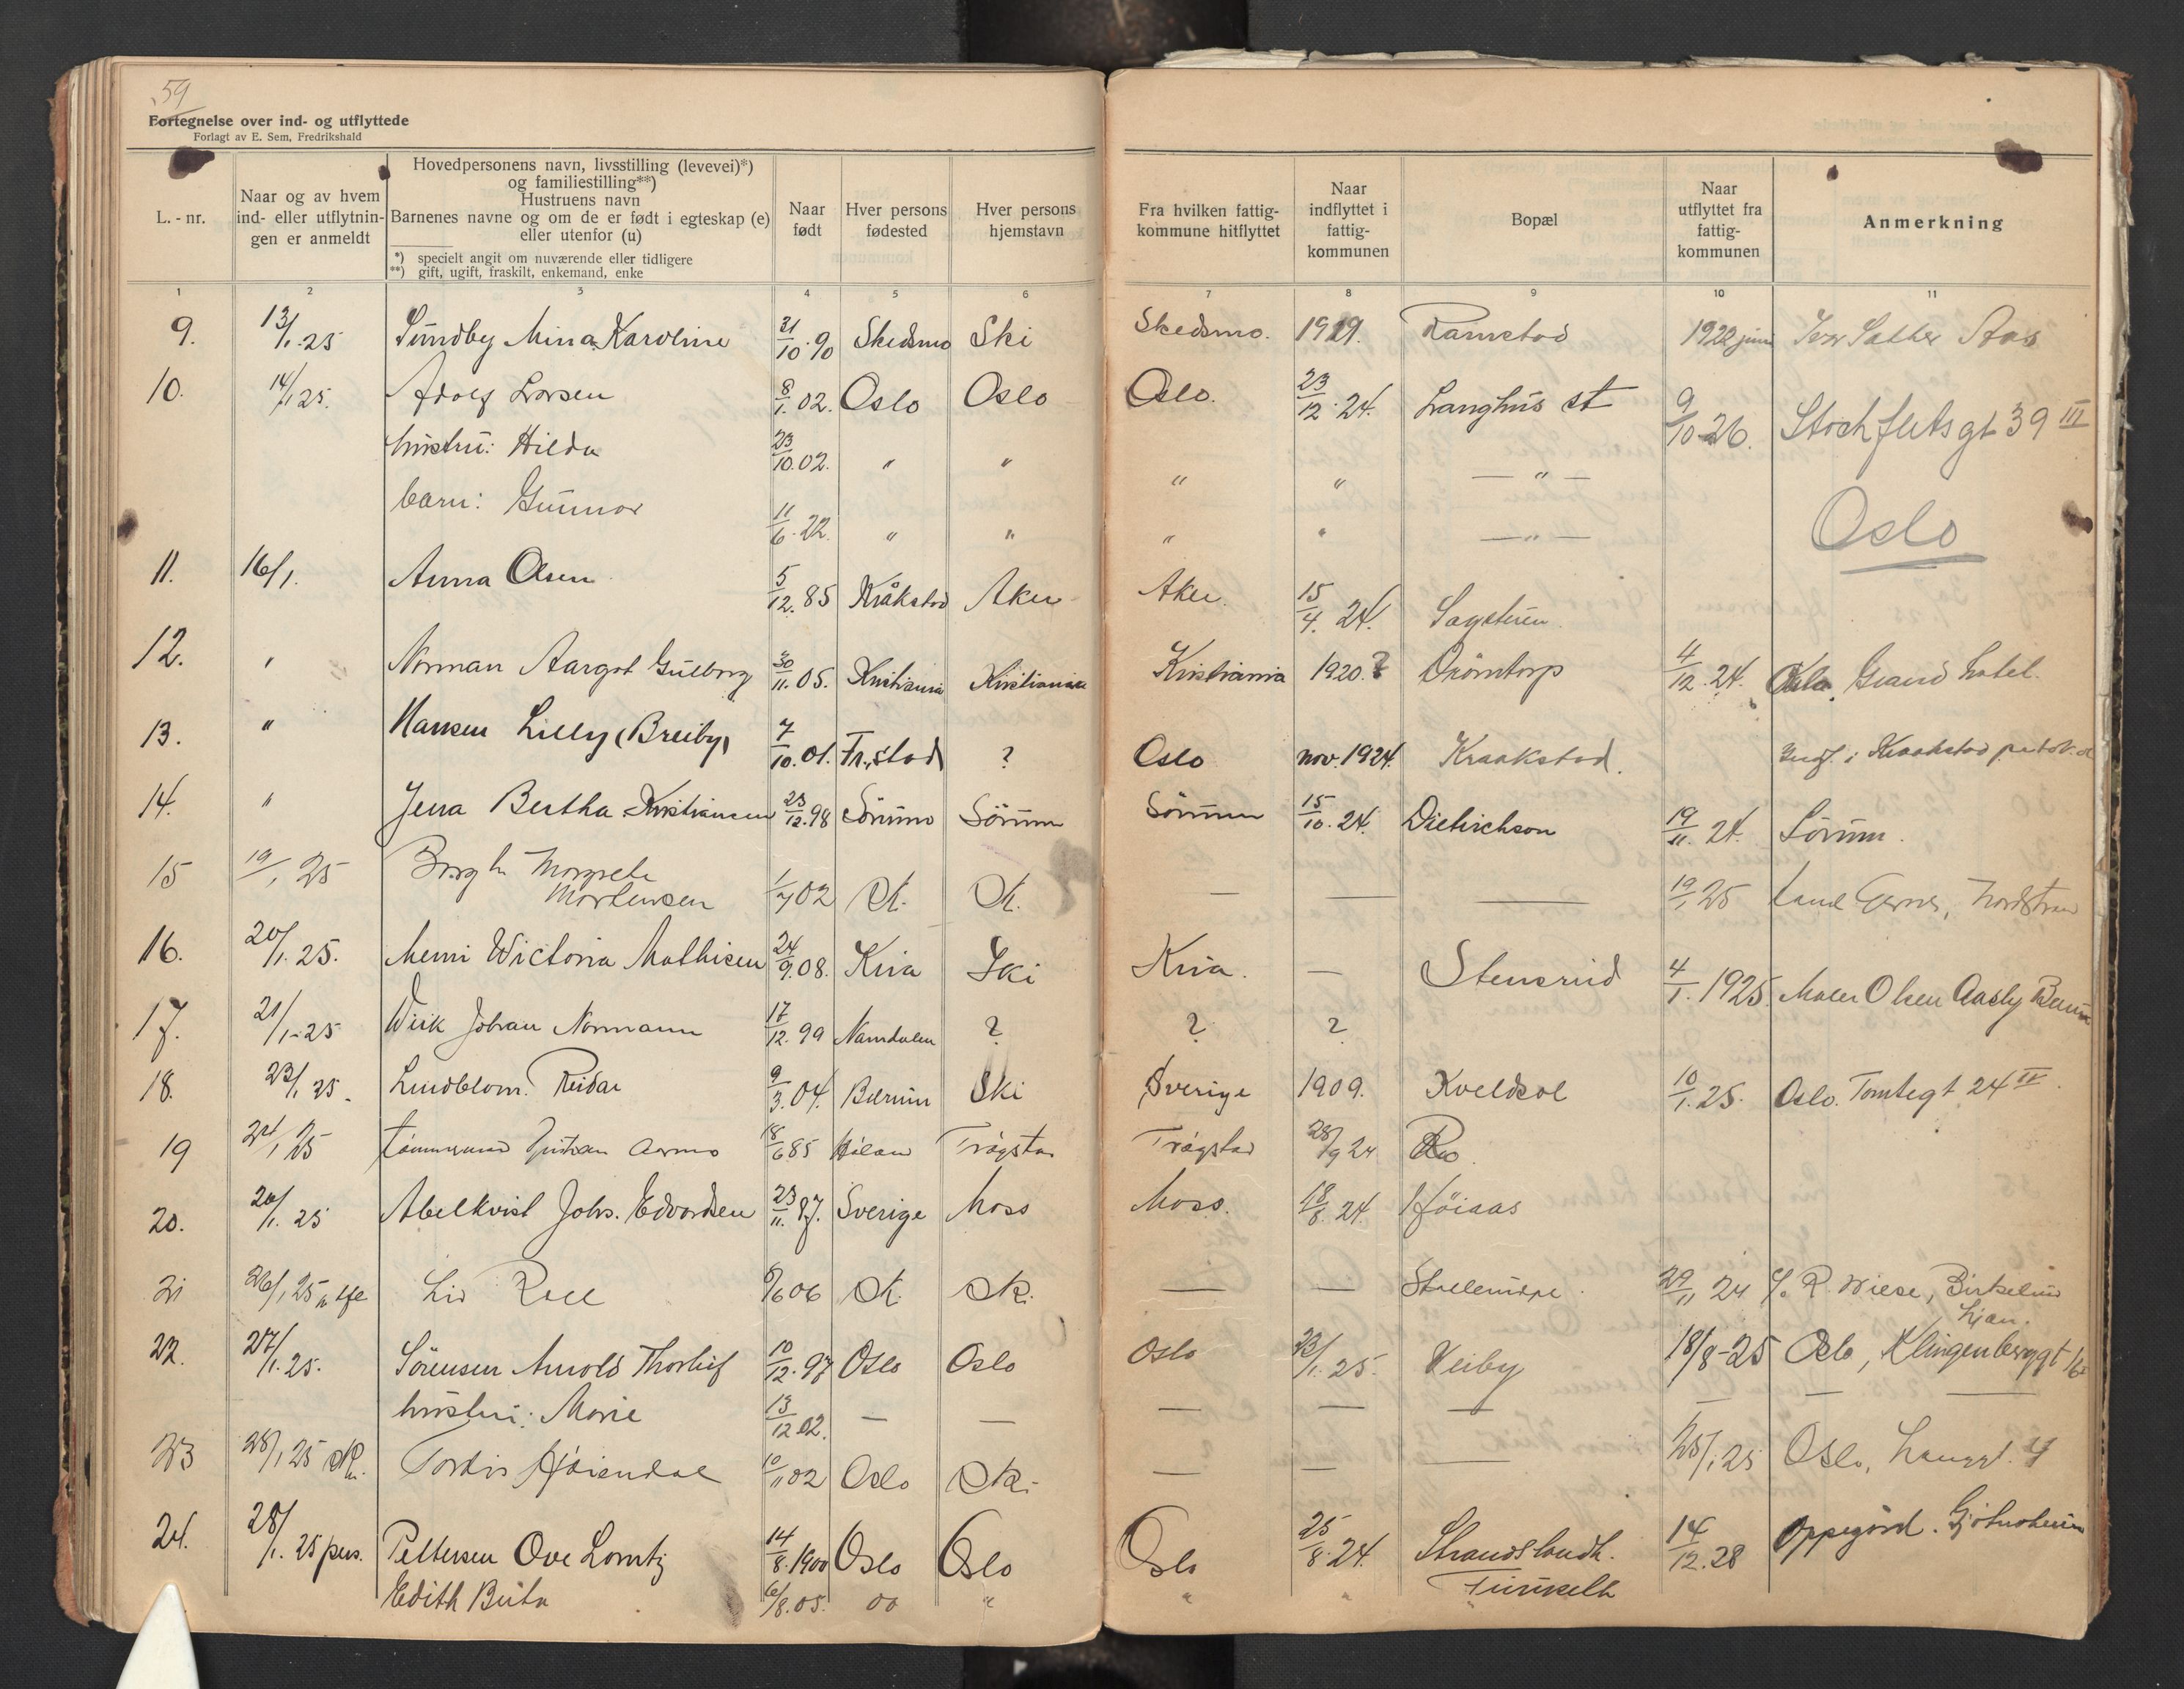 59
Fortegnelse over ind- og utflyttede
Forlagt av E. Sem, Fredrikshald
L.-nr.
Naar og av hvem ind- eller utflytningen er anmeldt
Hovedpersonens navn, livsstilling (levevei)*)
og familiestilling**)
Hustruens navn
Barnenes navne og om de er født i egteskap (e)
eller utenfor (u)
*) specielt angit om nuværende eller tidligere
**) gift, ugift, fraskilt, enkemand, enke
Naar født
Hver persons fødested
Hver persons hjemstavn
Fra hvilken fattigkommune hitflyttet
Naar indflyttet i fattigkommunen
Bopæl
Naar utflyttet fra fattigkommunen
Anmerkning
1 2 3 4 5 6 7 8 9 10 11
9. 13/1.25 Sundby Mina Karoline 31/10.90 Skedsmo Ski Skedsmo. 1919. Ramstad 1922 juni Sæther Aas
10. 14/1 25. Adolf Larsen 8/1.02. Oslo Oslo Oslo. 23/12.24. Langhus st 9/10-26. Stockfletsgt 39 III
hustru: Hilda 23/10.02. " " " " — " —
barn: Gunnar 11/6.22. " " " " — " — Oslo
11. 16/1. Anna Olsen 5/12.85 Kråkstad Aker Aker. 15/4.24. Sagstuen.
12. " Norman Aargot Gulborg 30/11.05. Kristiania Kristiania Kristiania 1920.? Drömtorp 4/12.24. Oslo. Grand hotel.
13. " Hansen Lilly (Breiby) 7/10.01. Fr.stad ? Oslo nov. 1924. Kraakstad. Indf. i Kraakstad
14. " Jena Bertha Kristiansen 23/12.98 Sörum Sörum Sörum 15/10.24. Dietrichson 19/11.24. Sörum.
15 19/1 25 Margrete Mortensen 1/7 02 Sk. Sk. — — — 19/1 25 Nordstrand
16. 20/1.25. Memi Wictoria Mathisen 24/9.08. Kria Ski Kria. — Stensrud 4/1.1925. Maler Olsen Aasly Bærum
17. 21/1-25 Wiik Johan Normann 17/12.99 Namdalen ? ? ?
18. 23/1.25. Lindblom. Reidar 9/3.04. Bærum Ski Sverige 1909. Kveldsol 10/1.25. Oslo. Tomtegt 24 IV.
19 24/1 25 18/6 85 Trögstad Trögstad 28/9 24
20. 20/1.25 Abelkvist Johs. Edvardsen 23/11.87. Sverige Moss Moss. 18/8.24. Höiaas
21 26/1 25 Liv Roll 9/6 06 Sk. Sk. — — 29/11 24 c/o R. Wiese, Birkelund Ljan.
22. 27/1.25. Sörensen Arnold Thorleif 10/12.97 Oslo Oslo Oslo 23/1.25. Veiby 18/8-25 Oslo, Klingenberggt
hustru: Marie 13/12 02. — — — — — — — —
23 28/1 25 Sk. Tordis Höiendal 10/11 02 Oslo Sk. — — — 25/1 25 Oslo,
24. 28/1.25 pers. Pettersen Ove Lorntz 14/8.1900 Oslo Oslo Oslo 25/8.24. Strandslandh. 14/12.28 Oppegård.
Edith Birta 6/8.05. oo " " "